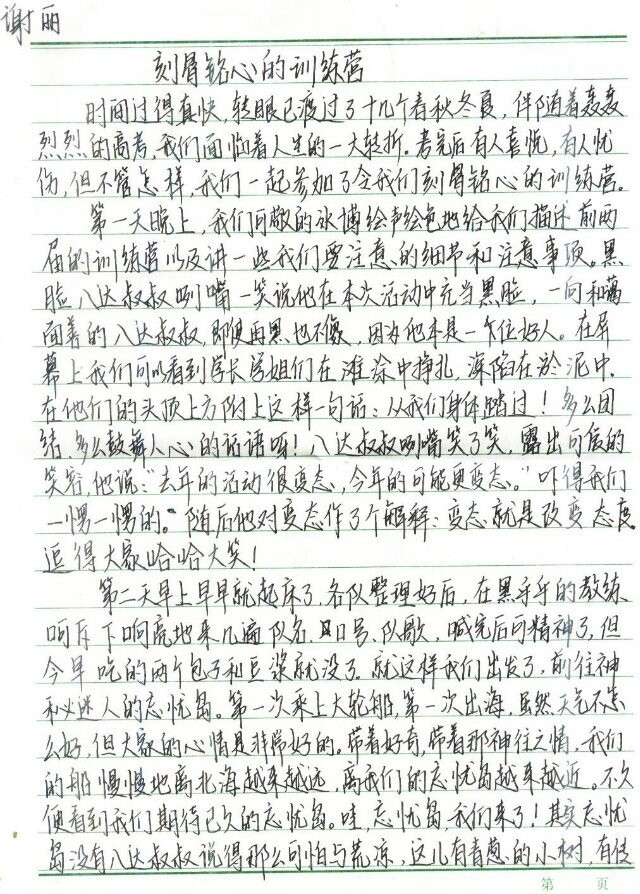 谢丽
刻骨铭心的训练营
时间过得真快,转眼已渡过了十几个春秋冬夏,伴随着轰轰
烈烈的高考,我们面临着人生的一大转折。考完后有人喜悦,有人忧
伤,但不管怎样,我们一起参加了令我们刻骨铭心的训练营。
第一天晚上,我们可敬的冰博绘声绘色地给我们描述前两
届的训练营以及讲一些我们要注意的细节和注意事项。黑
脸八达叔叔咧嘴一笑说他在本次活动中充当黑脸,一向和蔼
面善的八达叔叔,即使再黑也不像,因为他本是一个位好人。在屏
幕上我们可以看到学长学姐们在滩涂中挣扎,深陷在淤泥中,
在他们的头顶上方附上这样一句话:从我们身体踏过!多么团
结,多么鼓舞人心的话语呀!八达叔叔咧嘴笑了笑,露出可怕的
笑容,他说:“去年的活动很变态,今年的可能更变态。”吓得我们
一愣一愣的。随后他对变态作了个解释:变态就是改变态度,
逗得大家哈哈大笑!
第二天早上早早就起床了,各队整理好后,在黑乎乎的教练
呵斥下响亮地来几遍队名、口号、队歌,喊完后可精神了,但
今早吃的两个包子和豆浆就没了。就这样我们出发了,前往神
秘迷人的忘忧岛。第一次乘上大轮船,第一次出海,虽然天气不怎
么好,但大家的心情是非常好的。带着好奇,带着那神往之情,我们
的船慢慢地离北海越来越远,离我们的忘忧岛越来越近。不久
便看到我们期待已久的忘忧岛。哇,忘忧岛,我们来了!其实忘忧
岛没有八达叔叔说得那么可怕与荒凉,这儿有青葱的小树,有任
第 页